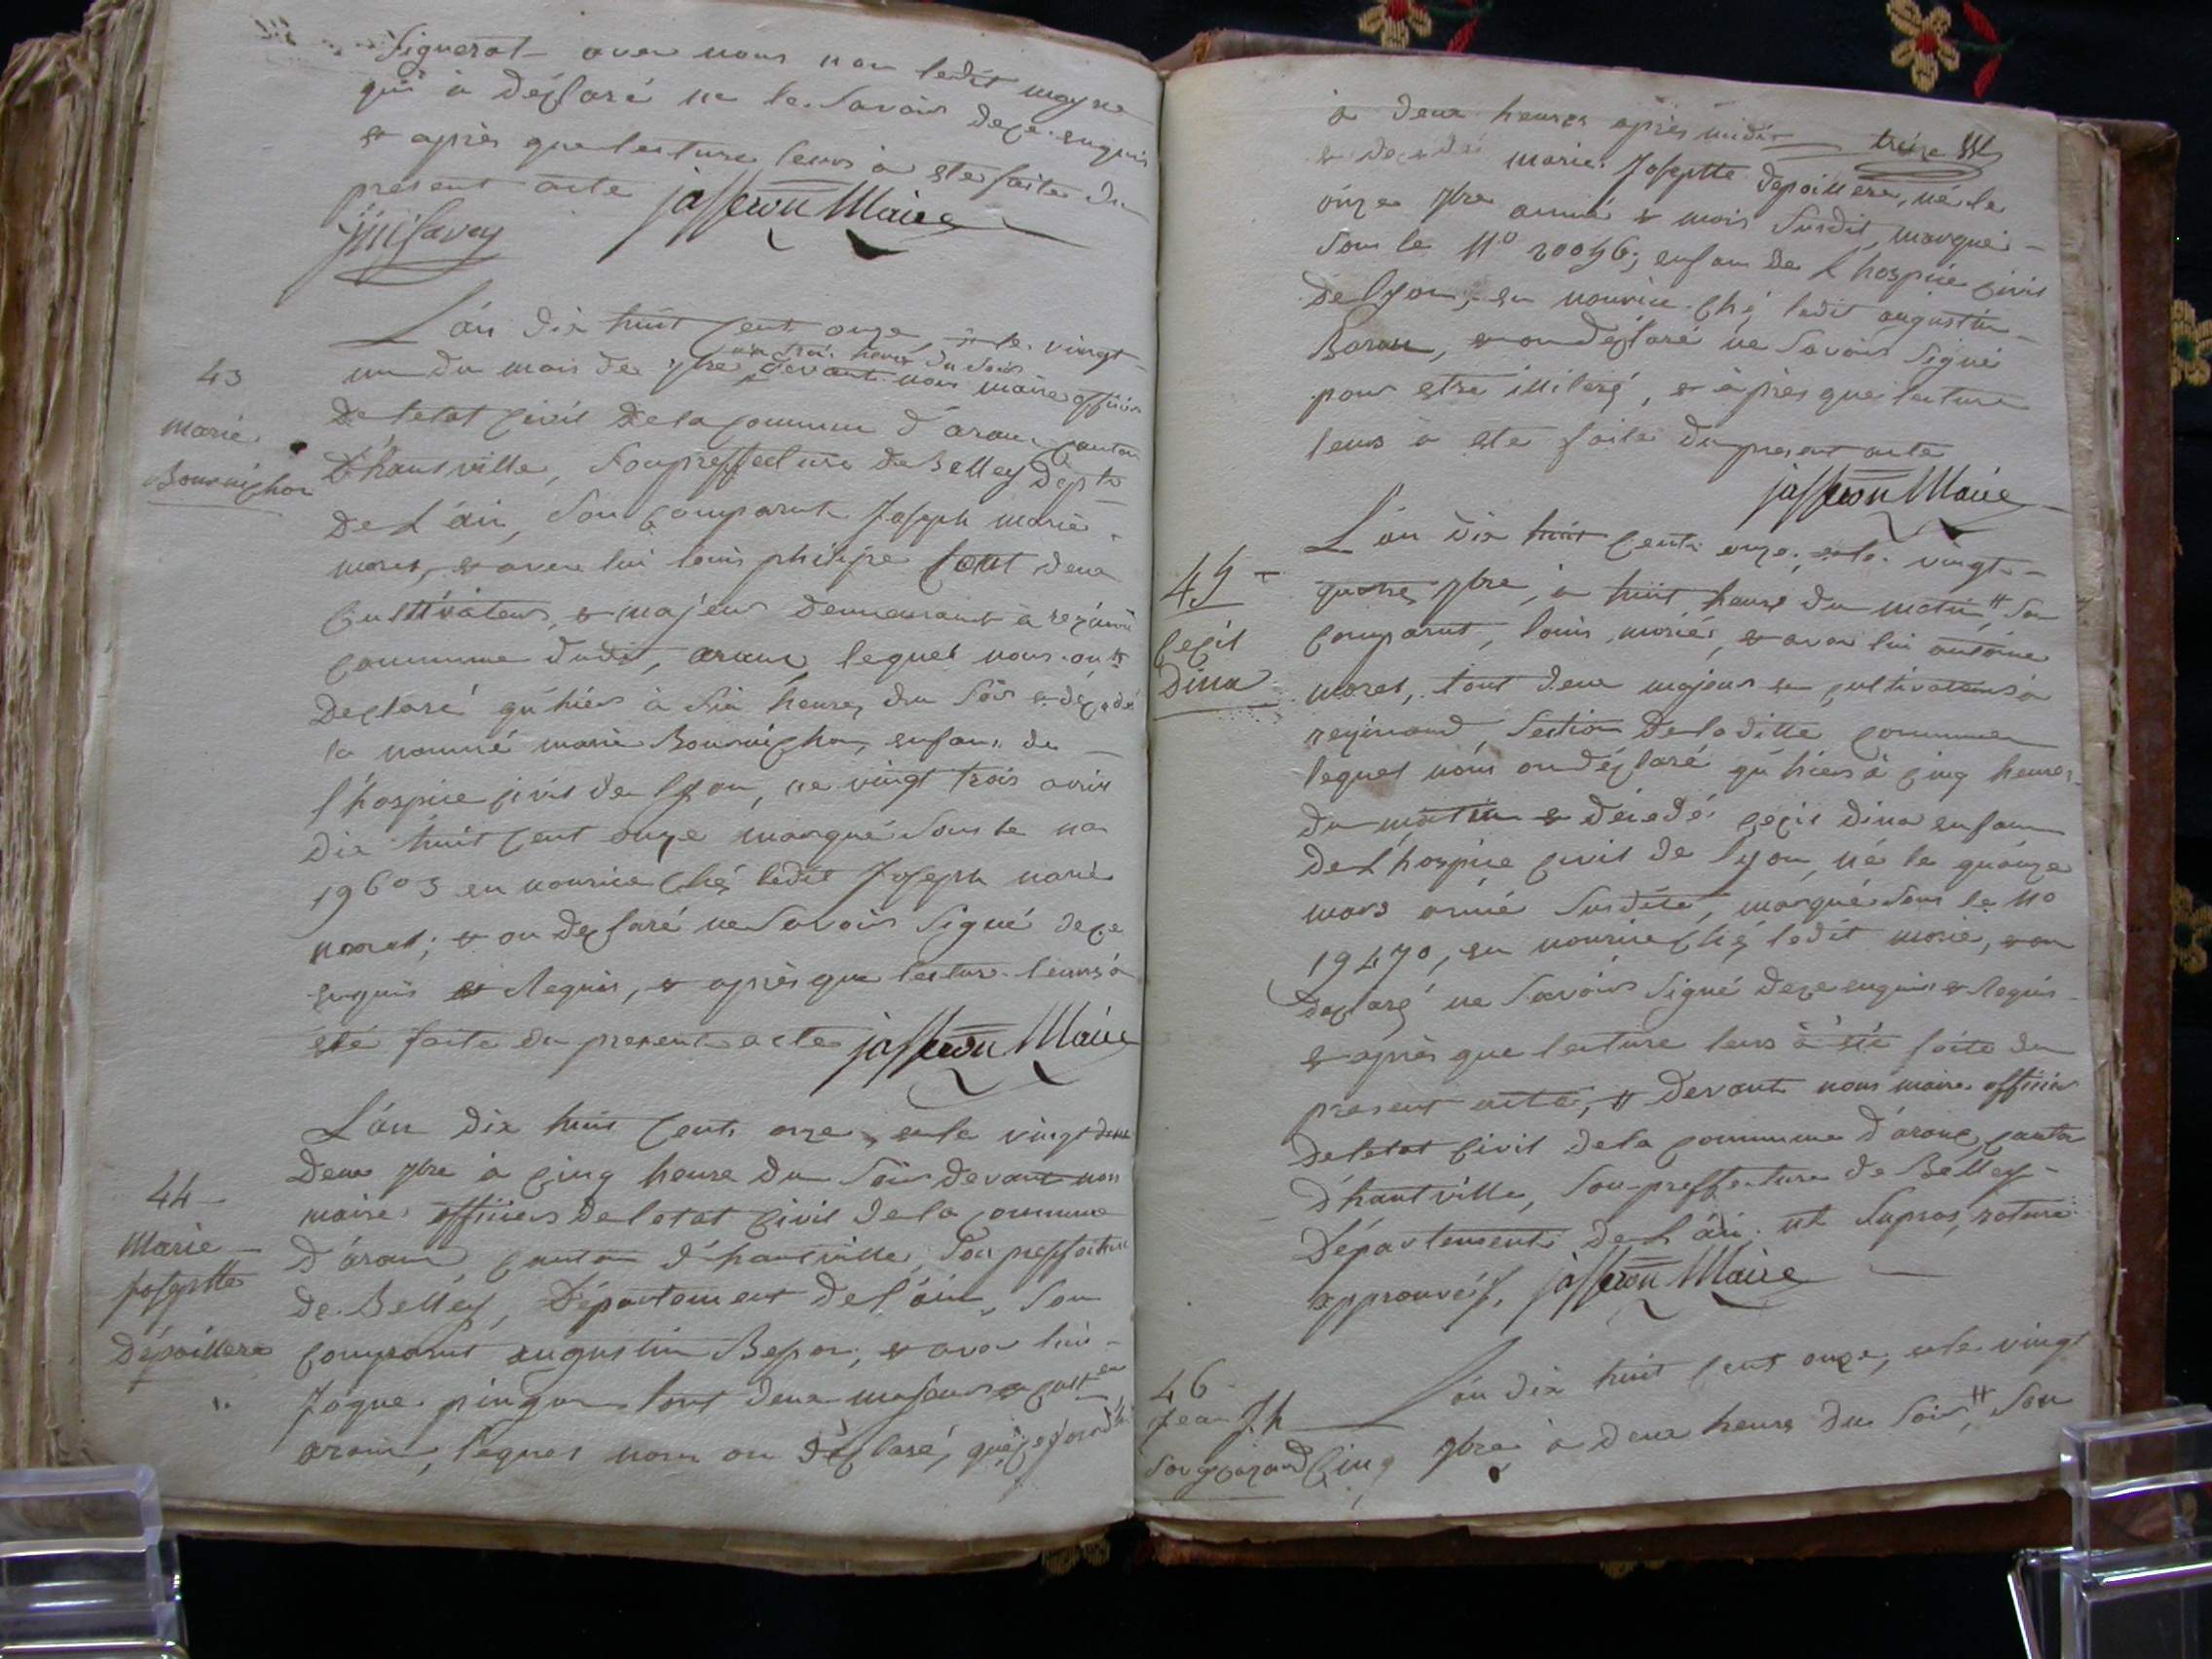 Signerat avec nous non ledit mayne
qui à déclaré ne le savoir dece enquis
et après que lecture leurs à ete faite du
present acte jasseron Maire
43
Marie
Bournichon
L'an dix huit cent onze, et le vingt
un du mois de 7bre devant nous maire officier
heure du soir
de letat civil de la commune d'aranc canton
d'hautville, soupreffecture de Belley dept
de L'ain, son comparut Joseph marie
moret, et avec lui louis philipe tout deux
cultivateurs, et majeurs demeurant à rezinand
commune dudit, aranc lequel nous ont
declaré qu'hier à six heures du soir et décédé
la nommé marie Bournichon, enfant de
l'hospice civil de lyon, ne vingt trois avril
dix huit cent onze marqué sous le no
19603 en nourrice ché ledit Joseph marie
moret; et on declaré ne savoir signé dece
enquis et Requis, et après que lecture leurs à
eté faite du present acte jasseron Maire
44
Marie
josephtte
dépaillere
L'an dix huit cent onze, et le vingt deux
deux 7bre à cinq heure du soir devant nou
maire officiers de letat civil de la commune
d'aranc canton d'hautville, soupreffecture
de Belley, Département de l'ain, son
comparut augustin, et avec lui
Jaque pingon tout deux majeurs et cult
aranc, lequel nous on déclaré, que
à deux heures après midi treize
et décédé marie Josephtte depaillere, né le
onze 7bre année et mois susdit, marqué
sous le N° 20056; enfant de L'hospice civil
de lyon, en nourrice ché ledit augustin
et on déclaré ne savoir signé
pour etre illiteré, et après que lecture
leurs à eté faite du present acte
jasseron Maire
45
cecil
Dina
L'an dix huit cent onze, et le vingt
quatre 7bre, à huit heure du matin # son
comparut, louis marié, et avec lui antoine
moret, tout deux majeurs et cultivateurs à
rezinand, section de la ditte commune
lequel nous on déclaré qu'hier à cinq heures
du matin et décédé cecil dina enfant
de L'hospice civil de lyon, né le quinze
mars anné susdite, marqué sous le No
19470, en nourrice ché ledit marié, et on
declaré ne savoir signé dece enquis et Requis
et après que lecture leurs à été faite du
present acte, # Devant nous maire officier
de letat civil de la commune d'aranc, canton
d'hautville, sou-preffecture de Belley
Département de L'ain ut supras, rature
approuvéf. jasseron Maire
46
Jean J.h
L'an dix huit cent onze, et le vingt
cinq 7bre à deux heures du soir #, son